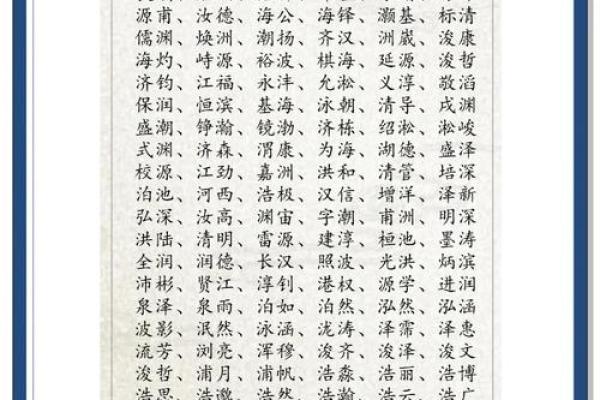 源甫、汝德、海公、海铎、灏基、标清
儒渊、焕洲、潮扬、齐汉、洲崴、浚康
海灼、峙源、裕波、棋海、延源、浚哲
济钧、江福、永沣、允淞、义淳、敬滔
保润、恒滨、基海、泳朝、清导、戌渊
盛潮、铮瀚、镜渤、济栋、绍淞、淞峻
式渊、济森、渭康、为海、湖德、盛泽
校源、江劲、嘉洲、洪和、清管、培深
泊池、河西、浩极、汉信、增洋、泽新
弘深、汝高、渊宙、字潮、甫洲、明深
洪陆、清明、雷源、建淳、桓池、墨涛
全润、润德、长汉、照波、光洪、炳滨
沛彬、贤江、淳钊、港权、源学、进润
泉泽、泉雨、泊如、泊然、泓然、泓涵
波影、泯然、泳涵、泷涛、泽霈、泽惠
流芳、浏亮、浑穆、浚齐、浚泽、浚文
浚哲、浦月、浦帆、浩淼、浩丽、浩博
浩思、浩邈、浩然、浩瀚、浩云、浩广